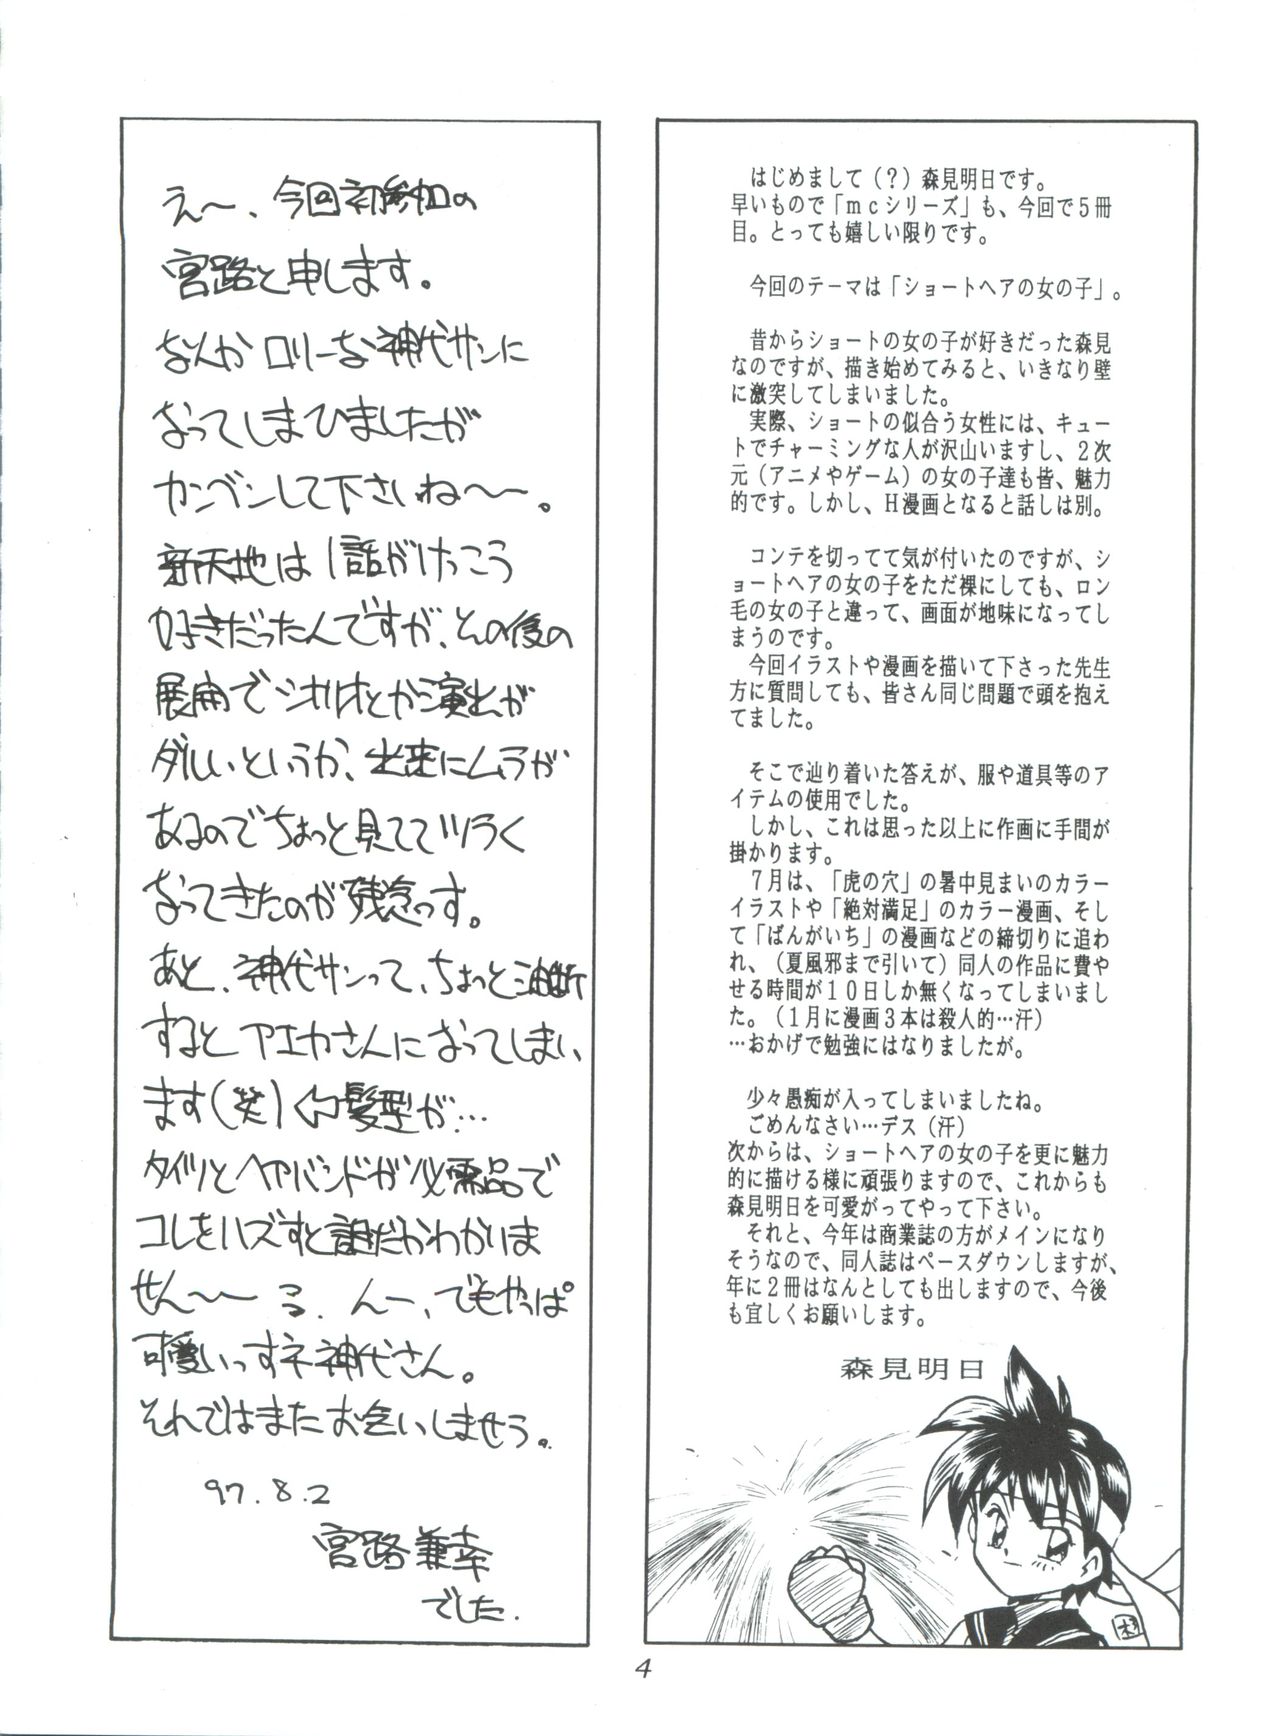 はじめまして（？）森見明日です。
早いもので「ｍｃシリーズ」も、今回で５冊
目。とっても嬉しい限りです。
今回のテーマは「ショートヘアの女の子」。
昔からショートの女の子が好きだった森見
なのですが、描き始めてみると、いきなり壁
に激突してしまいました。
実際、ショートの似合う女性には、キュー
トでチャーミングな人が沢山いますし、２次
元（アニメやゲーム）の女の子達も皆、魅力
的です。しかし、Ｈ漫画となると話しは別。
コンテを切ってて気が付いたのですが、シ
ョートヘアの女の子をただ裸にしても、ロン
毛の女の子と違って、画面が地味になってし
まうのです。
今回イラストや漫画を描いて下さった先生
方に質問しても、皆さん同じ問題で頭を抱え
てました。
そこで辿り着いた答えが、服や道具等のア
イテムの使用でした。
しかし、これは思った以上に作画に手間が
掛かります。
７月は、「虎の穴」の暑中見まいのカラー
イラストや「絶対満足」のカラー漫画、そし
て「ばんがいち」の漫画などの締切りに追わ
れ、（夏風邪まで引いて）同人の作品に費や
せる時間が１０日しか無くなってしまいまし
た。（１月に漫画３本は殺人的…汗）
…おかげで勉強にはなりましたが。
少々愚痴が入ってしまいましたね。
ごめんなさい…デス（汗）
次からは、ショートヘアの女の子を更に魅力
的に描ける様に頑張りますので、これからも
森見明日を可愛がってやって下さい。
それと、今年は商業誌の方がメインになり
そうなので、同人誌はペースダウンしますが、
年に２冊はなんとしても出しますので、今後
も宜しくお願いします。
森見明日
え〜、今回初参加の
宮路と申します。
なんかロリーな神代サンに
なってしまひましたが
カンベンして下さいね〜〜。
新天地は１話がけっこう
好きだったんですが、その後の
展開でシオリとか演出が
ダルいというか、出来にムラが
あるのでちょっと見ててツラく
なってきたのが残念っす。
あと、神代サンって、ちょっと油断
するとアエカさんになってしまい
ます（笑）⇦髪型が…
タイツとヘアバンドが必需品で
コレをハズすと誰だかわかりま
せん〜〜 る、んー、でもやっぱ
可愛いっすネ神代さん。
それではまたお会いしませう。
97.8.2
宮路兼幸
でした.
4